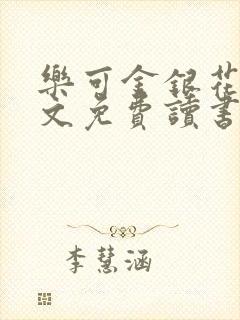 樂可金銀花
文免費讀書
李慧涵